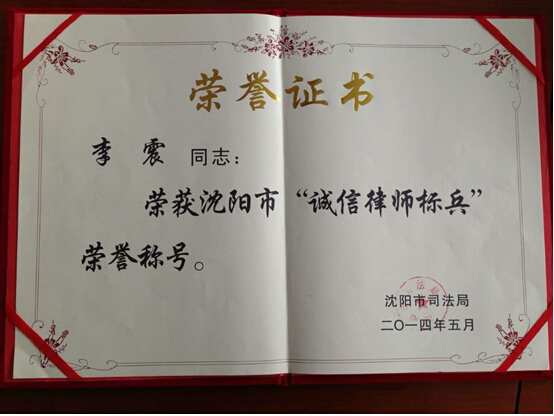 荣誉证书
李 震 同志：
荣获沈阳市“诚信律师标兵”
荣誉称号。
沈阳市司法局
二〇一四年五月